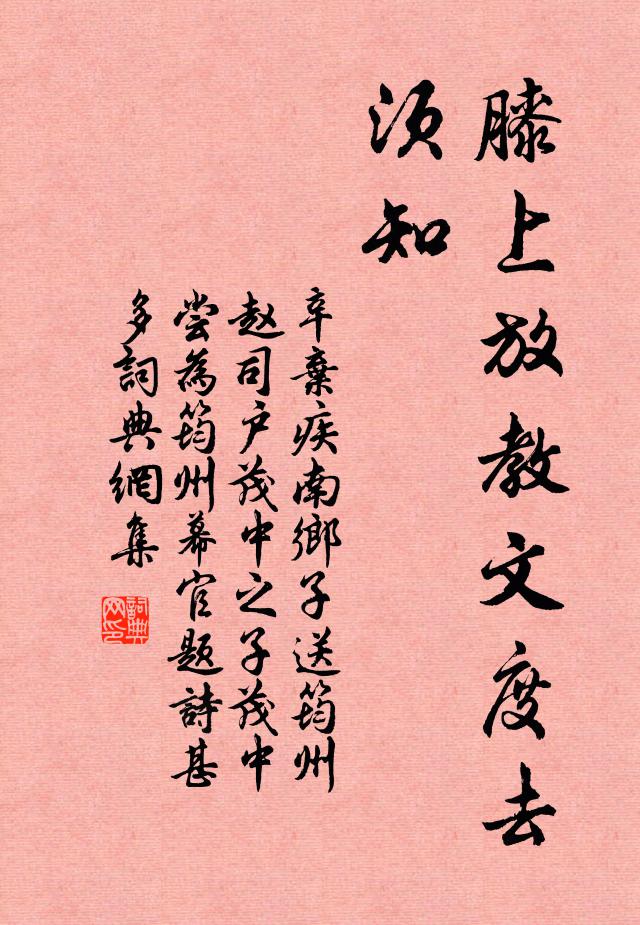 膝上放教文度去
須知
辛棄疾南鄉子送筠州
赵司户茂中之子茂中
尝為筠州幕官题詩甚
多詞典網集
詞典
网印